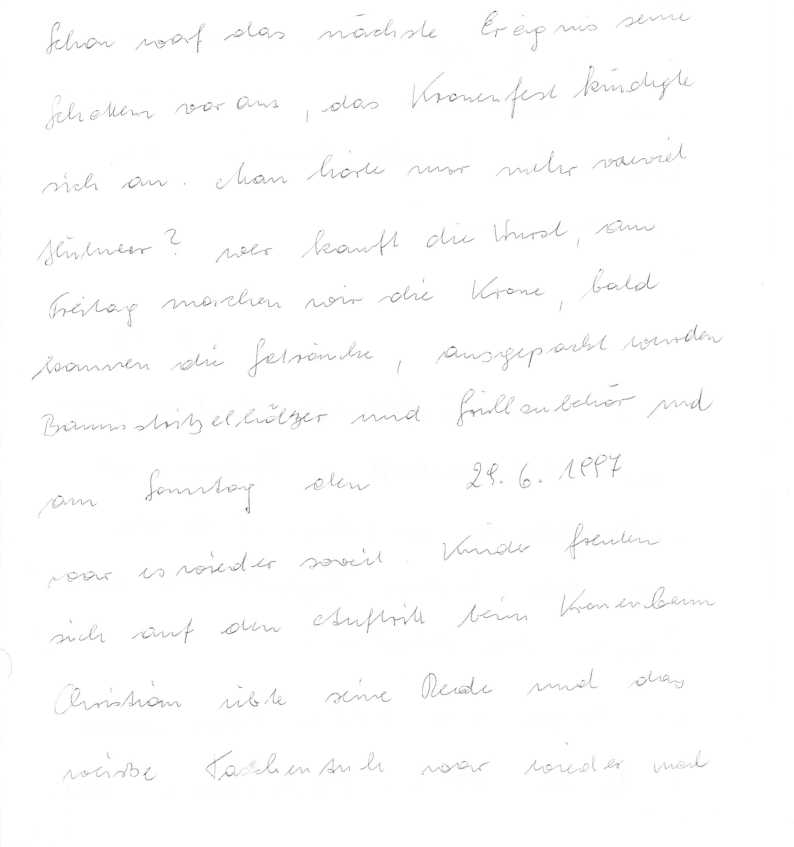 Schon warf das nächste Ereignis seine
Schatten voraus, das Kronenfest kündigte
sich an. Man hörte nur mehr wieviel
Hühner? wer kauft die Wurst, am
Freitag machen wir die Krone, bald
kammen die Getränke, ausgepackt wurden
Baumstritzelhölzer und Grillzubehör und
am Sonntag den 29.6.1997
war es wieder soweit. Kinder freuten
sich auf den Auftritt beim Kronenbaum
Christian übte seine Rede und das
weiße Taschentuch war wieder mal